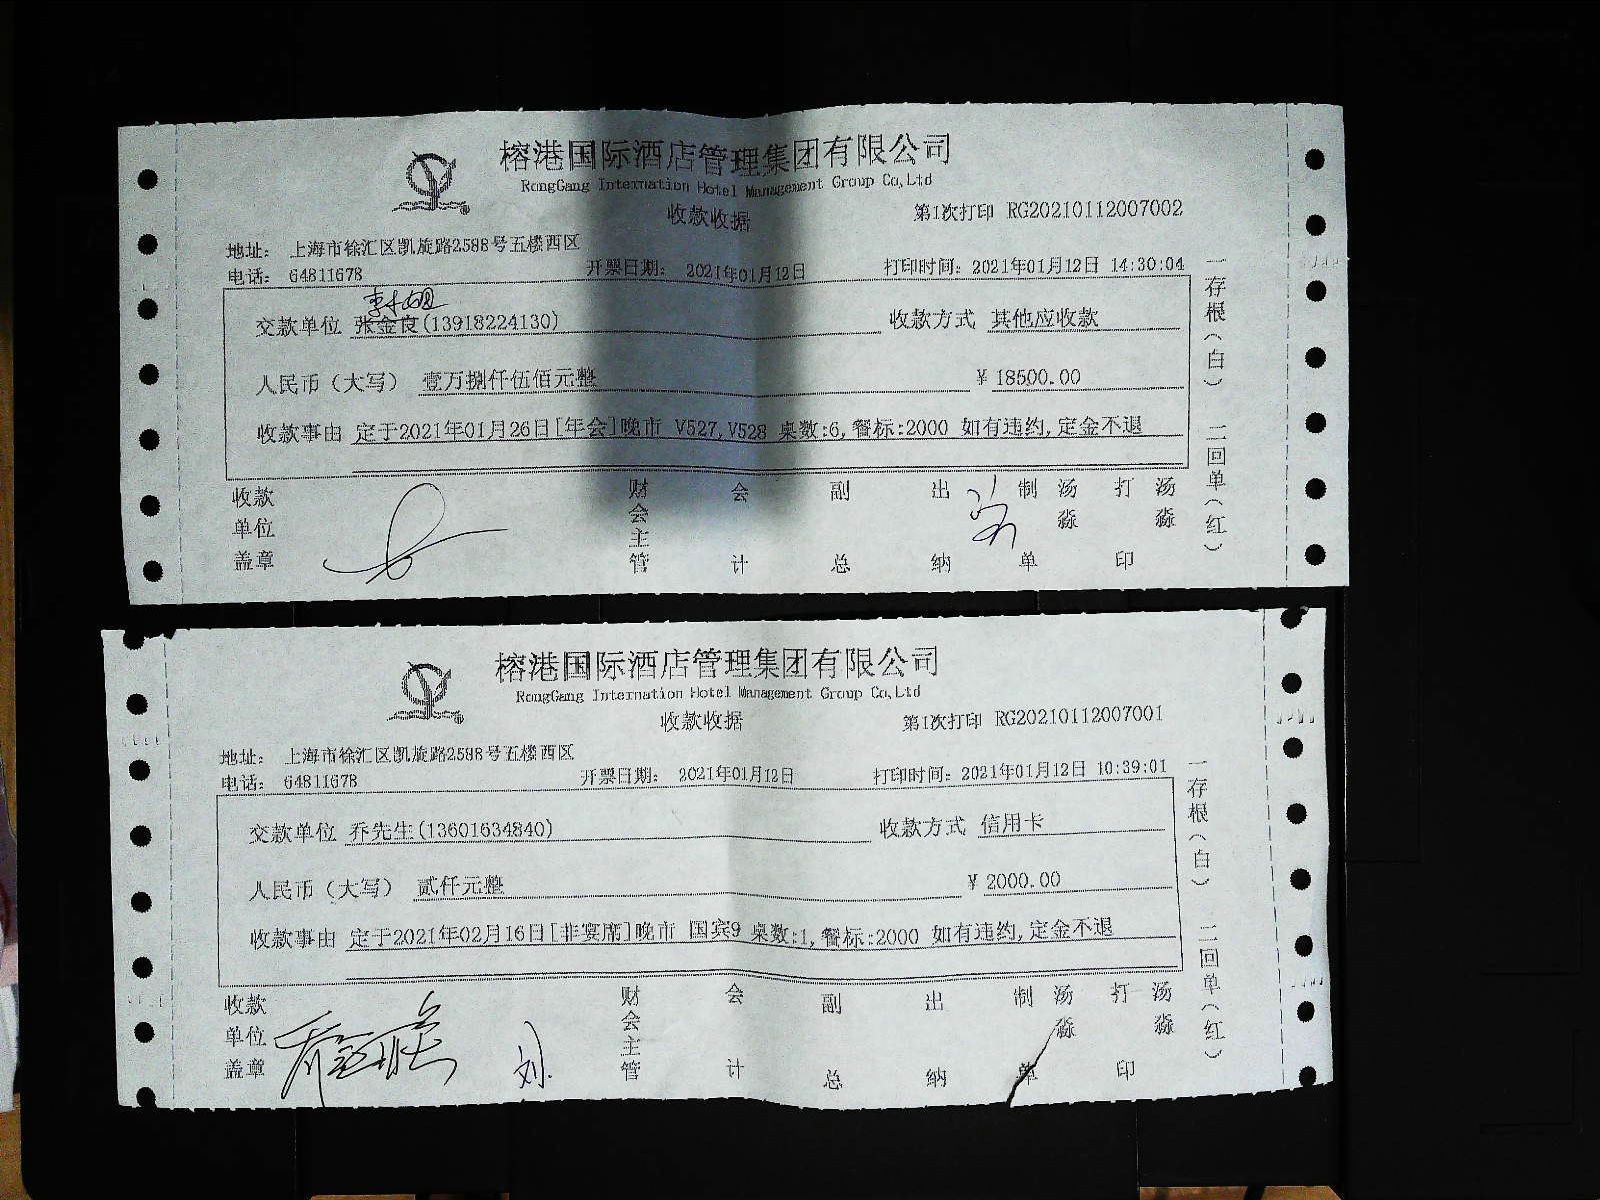 榕港国际酒店管理集团有限公司
RongGang Internation Hotel Management Group Co,Ltd
收款收据
第1次打印 RG20210112007002
地址： 上海市徐汇区凯旋路2588号五楼西区
电话： 64811678
开票日期： 2021年01月12日
打印时间：2021年01月12日 14:30:04
交款单位 张金良(13918224130)
收款方式 其他应收款
人民币（大写） 壹万捌仟伍佰元整
¥ 18500.00
收款事由 定于2021年01月26日[年会]晚市 V527,V528 桌数:6,餐标:2000 如有违约,定金不退
收款单位盖章
财会主管
会计
副总
出纳
制单
汤淼
打印
汤淼
一存根（白） 二回单（红）
榕港国际酒店管理集团有限公司
RongGang Internation Hotel Management Group Co,Ltd
收款收据
第1次打印 RG20210112007001
地址： 上海市徐汇区凯旋路2588号五楼西区
电话： 64811678
开票日期： 2021年01月12日
打印时间：2021年01月12日 10:39:01
交款单位 乔先生(13601634840)
收款方式 信用卡
人民币（大写） 贰仟元整
¥ 2000.00
收款事由 定于2021年02月16日[非宴席]晚市 国宾9 桌数:1,餐标:2000 如有违约,定金不退
收款单位盖章
刘
财会主管
会计
副总
出纳
制单
汤淼
打印
汤淼
一存根（白） 二回单（红）